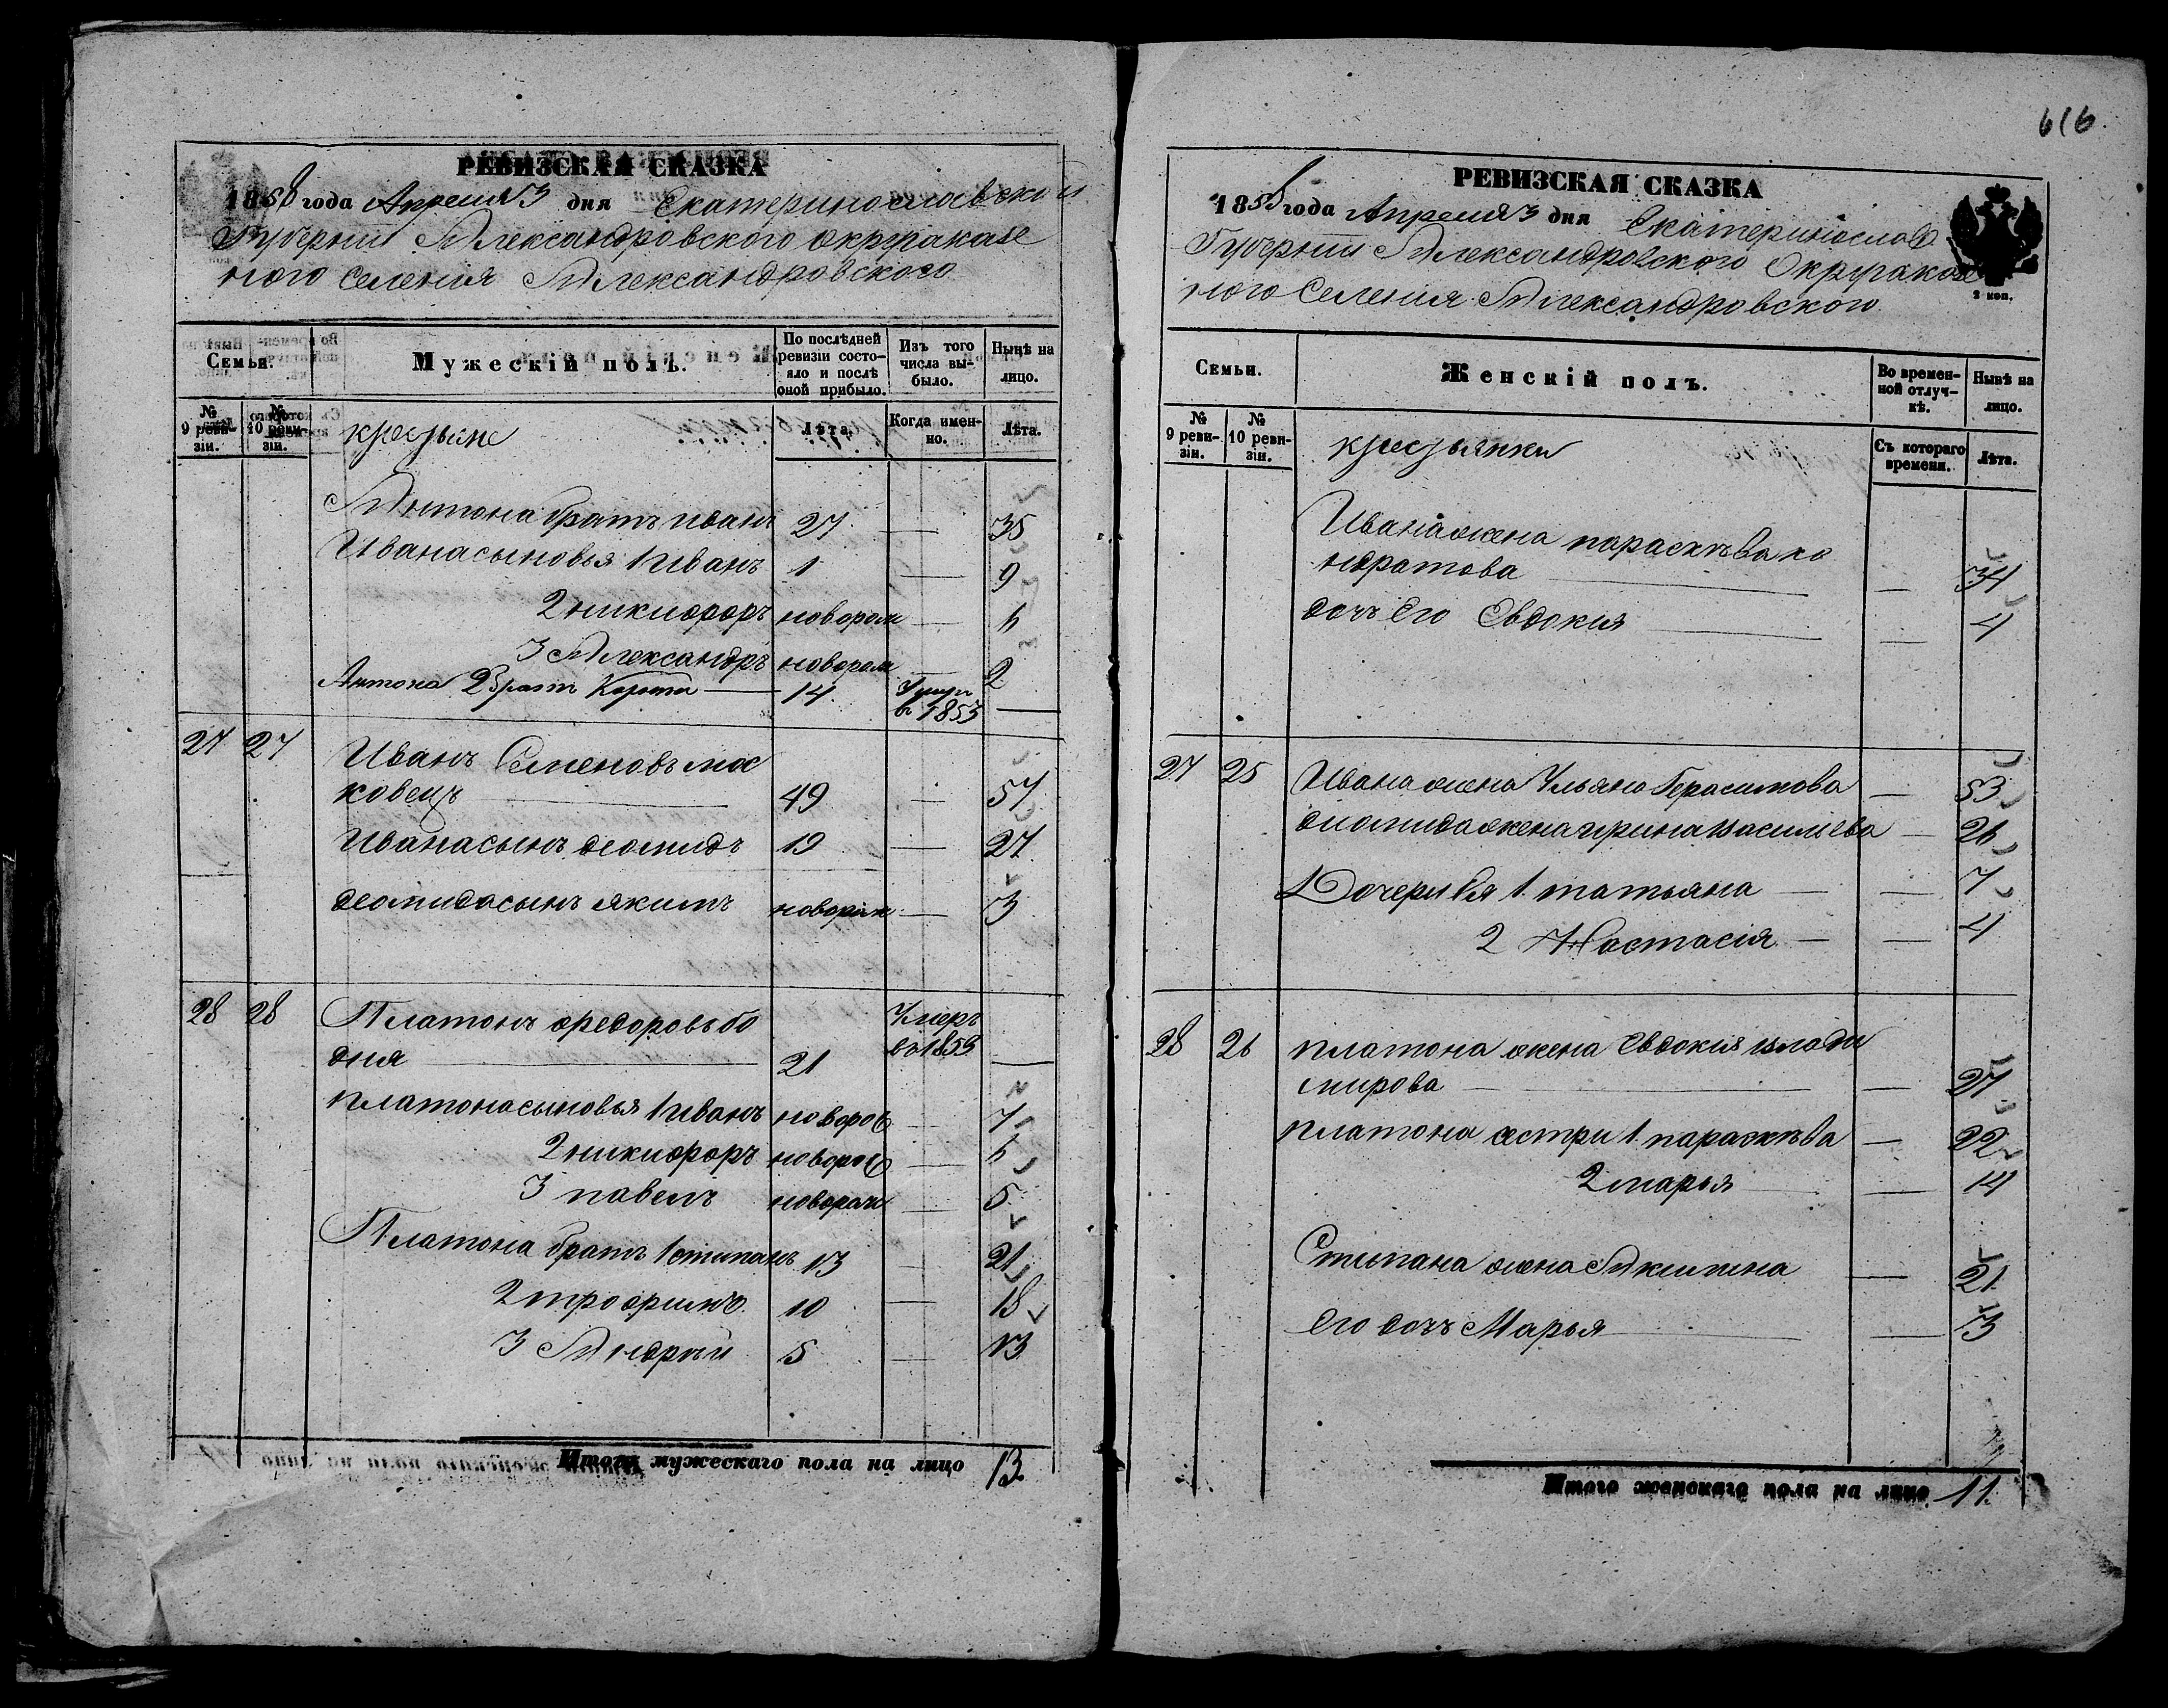 РЕВИЗСКАЯ СКАЗКА
1858 года Апреля 3 дня Екатеринославской
Губернии Александровского округа казе
ного селения Александровского
Семьи.
Мужескій полъ.
По послѣдней ревизіи состояло и послѣ оной прибыло.
Изъ того числа выбыло.
Нынѣ на лицо.
№ 9 ревизіи.
№ 10 ревизіи.
крестьяне
Лѣта.
Когда именно.
Лѣта.
Антона братъ иванъ 27 — 35
Ивана сыновья 1 иванъ 1 — 9
2 никифоръ новорож — 6
3 Александръ новорож — 2
Антона 2 братъ 14 Умеръ в 1853 —
27 27 Иванъ Семеновъ мос
ковецъ — 49 — 57
Ивана сынъ деомидъ 19 — 27
деомида сынъ якимъ новорож — 3
28 28 Платонъ федоровъ бо
дня — 21 Умеръ въ 1853 —
платона сыновья 1 иванъ новорож — 7
2 никифоръ новорож — 6
3 павелъ новорож — 5
Платона братъ 1 стипанъ 13 21
2 трофимъ 10 — 18
3 Андрѣй 5 — 13
Итого мужескаго пола на лицо 13
616.
РЕВИЗСКАЯ СКАЗКА
1858 года Апреля 3 дня Екатеринослав
Губернии Александровского Округа казе
ного Селения Александровского
2 коп.
Семьи.
Женскій полъ.
Во временной отлучкѣ.
Нынѣ на лицо.
№ 9 ревизіи.
№ 10 ревизіи.
крестьянки
Съ котораго времени.
Лѣта.
Ивана жена параскѣва ко
ндратова — — 34
дочъ Его Евдокия — — 4
27 25 Ивана жена Ульяна Герасимова — 53
диомида жена ирина василиева — 26
Дочери Ея 1 татьяна — — 7
2 Настасія — — 4
28 26 платона жена Евдокия влади
мирова — — 27
платона сестри 1 параскѣва — 22
2 марья — — 14
Стипана жена Акилина — 21
Его дочъ Марья — — 3
Итого женскаго пола на лицо 11.